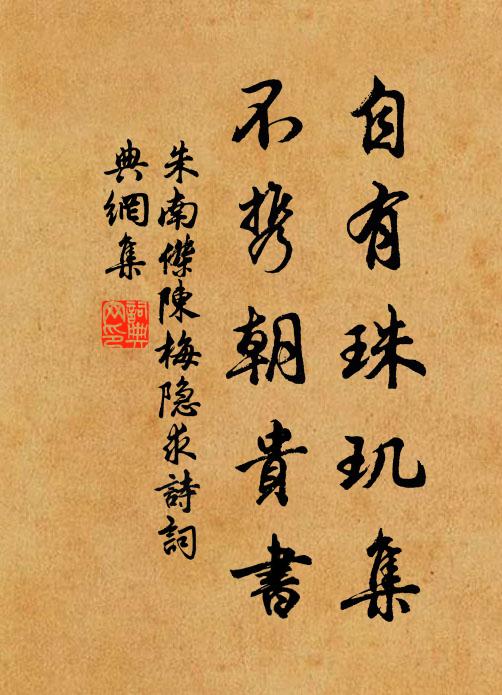 自有珠玑集
不携朝貴書
朱南傑陳梅隐求詩詞
典網集
詞典
网印